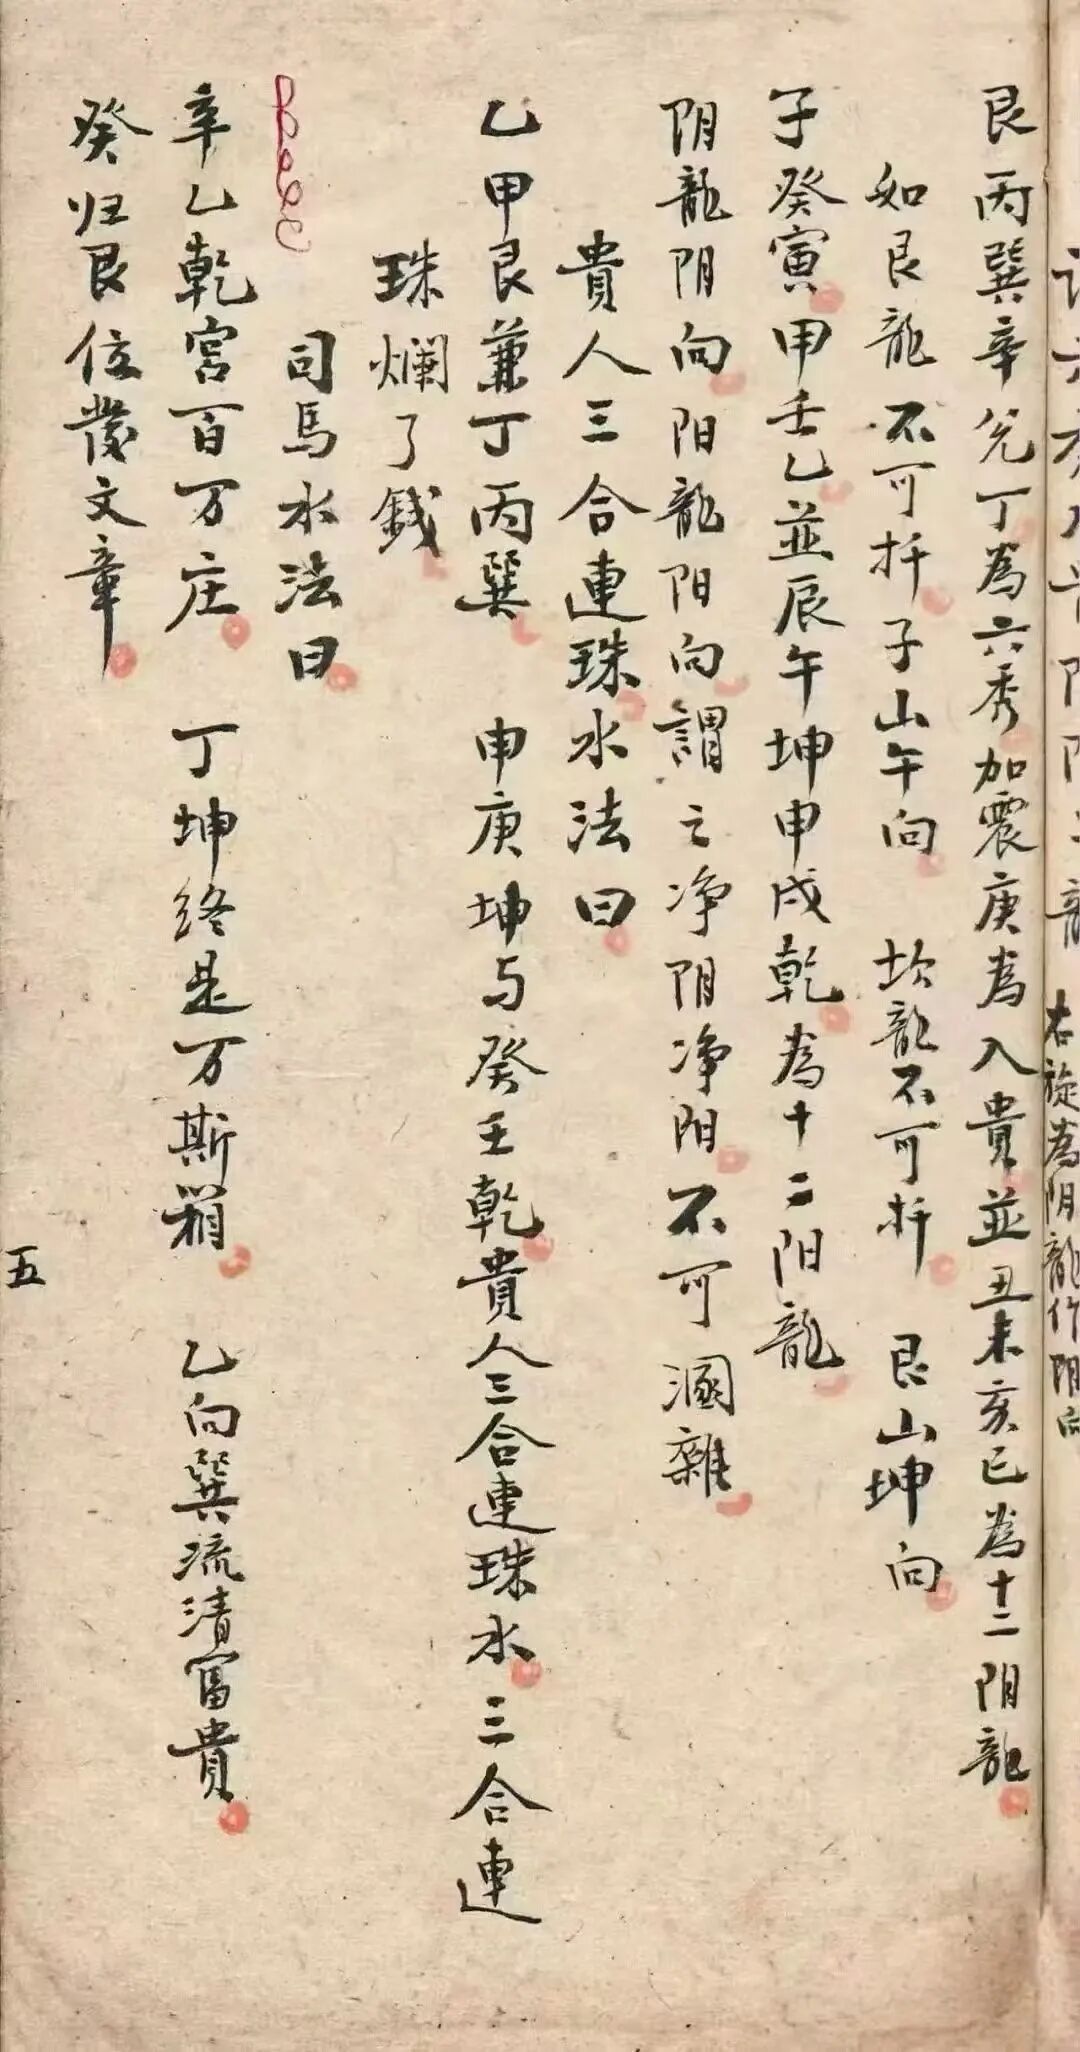 右旋為阴龍作阴向
艮丙巽辛兊丁為六秀加震庚為入貴並丑未亥巳為十二阴龍
如艮龍不可扦子山午向 坎龍不可扦 艮山坤向
子癸寅甲壬乙並辰午坤申戌乾為十二阳龍
阴龍阴向阳龍阳向謂之净阴净阳不可溷雜
貴人三合連珠水法曰
乙甲艮兼丁丙巽 申庚坤与癸壬乾貴人三合連珠水三合連
珠爛了錢
司馬水法曰
辛乙乾宮百万庄 丁坤终是万斯箱 乙向巽流清富貴
癸归艮位發文章
五